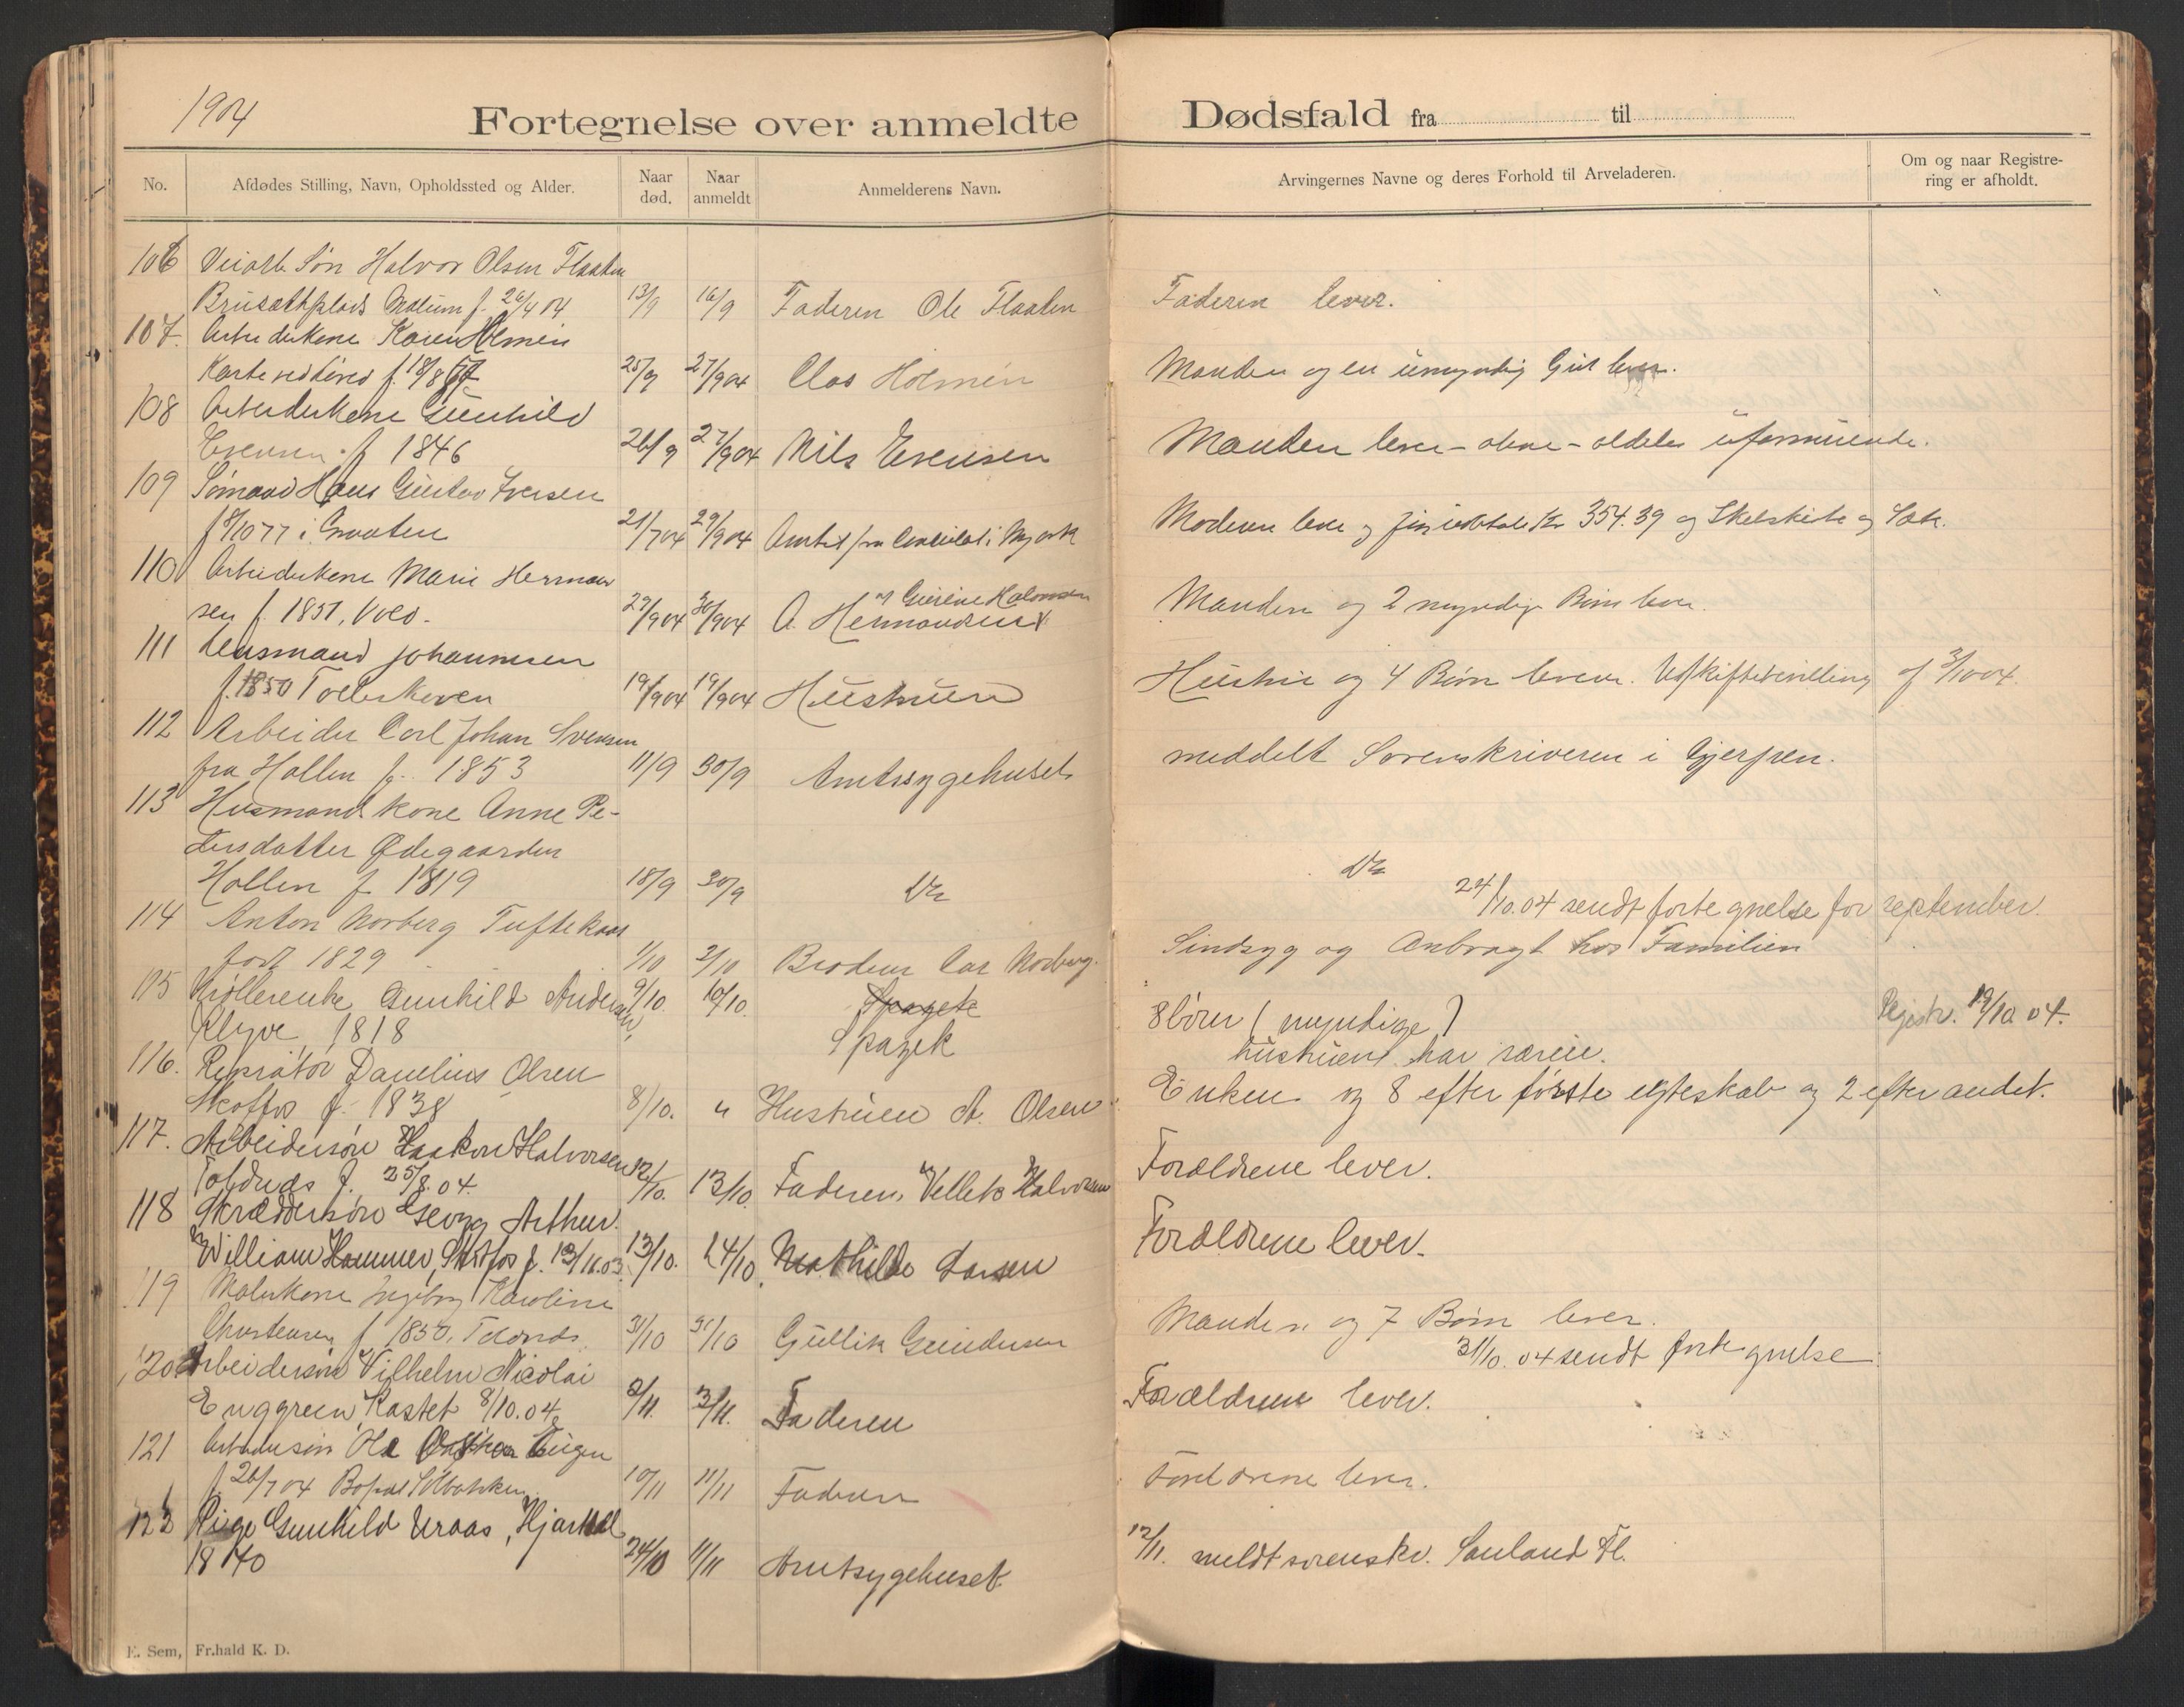 1904
Fortegnelse over anmeldte Dødsfald fra til
No. Afdødes Stilling, Navn, Opholdssted og Alder. Naar død. Naar anmeldt Anmelderens Navn. Arvingernes Navne og deres Forhold til Arveladeren. Om og naar Registrering er afholdt.
106 Veiarb. Søn Halvor Olsen Flaaten
Solum f. 26/4 04 13/9 16/9 Faderen Ole Flaaten Faderen lever.
107. Arbeiderkone Karen Holmen
f. 18/8 25/9 27/904 Clas Holmen Manden og en umyndig Gut lever.
108 Arbeiderkone Gunhild
Evensen f 1846 26/9 27/904 Nils Evensen Manden lever - - aldeles uformuende.
109 Sømand Hans Gustav Iversen
f 8/10 77 i Graaten 21/704 29/904 Amtet fra Moderen lever og Kr 354.39 og og
110 Arbeiderkone Marie Herman
sen f. 1851, Vold. 29/904 30/904 A. Hermansen Manden og 2 myndige Børn lever.
111 Lensmand Johannesen
f. 1850 19/904 19/904 Hustruen Hustru og 4 Børn lever. Uskiftebevilling af 3/1004.
112 Arbeider Carl Johan Svensen
fra Hollen f. 1853 11/9 30/9 Amtssygehuset meddelt Sorenskriveren i Gjerpen.
113 Husmand kone Anne Pe-
dersdatter Ødegaarden
Hollen f 1819 18/9 30/9 Do Do
24/10.04 sendt fortegnelse for september.
114 Anton Norberg Tuftekaas
født 1829 1/10 3/10 Broderen Carl Norberg. Sindsyg og Anbragt hos Familien
115 Møllerenke Gunhild Andersen, 9/10. 10/10. Spagek 8 børn (myndige) Registr. 19/10 04.
Klyve, 1818 Spagek hustruen har særeie.
116. Reparatør Danelius Olsen
Skotfos f. 1838 8/10. " Hustruen A. Olsen Enken og 8 efter første egteskab og 2 efter andet.
117. Arbeidersøn Haakon Halvorsen
f. 25/8.04. 12/10. 13/10. Faderen, Vellek Halvorsen Forældrene lever.
118 Skræddersøn Georg Arthur
William Hammer, Skotfos f. 13/11.03. 13/10. 14/10. Mathilde Larsen Forældrene lever.
119 Malerkone Ingeborg Karoline
Christensen f 1850, 31/10 31/10 Gullik Gundersen Manden og 7 Børn lever.
31/10.04 sendt fortegnelse
120 Arbeidersøn Vilhelm Nicolai
Enggreen, Kastet 8/10.04. 2/11. 3/11. Faderen Forældrene lever.
121 Arbeidersøn Ole Eugen
f 26/704 10/11 11/11 Faderen Forældrene lever.
122 Pige Gunhild Uraas, Hjartdal
1840 24/10 11/11 Amtsygehuset. 12/11. meldt sorenskr. Sauland Tl.
E. Sem, Fr.hald K. D.